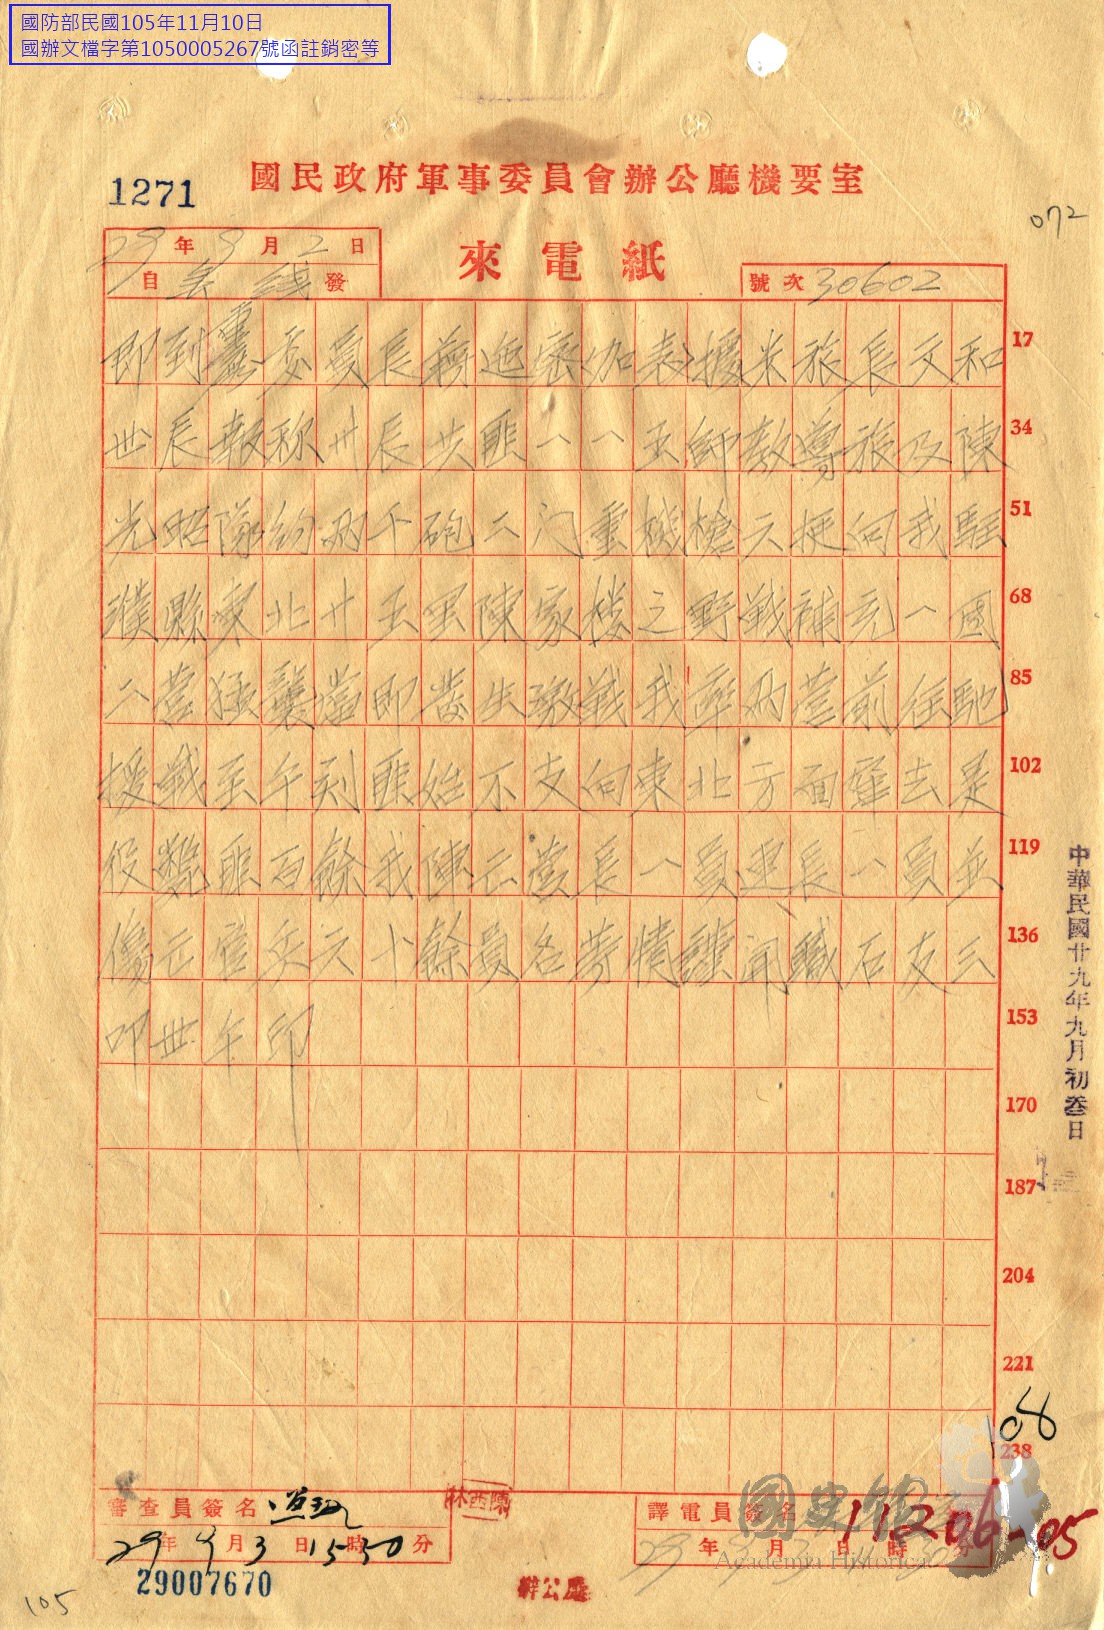 國防部民國105年11月10日
國辦文檔字第1050005267號函註銷密等
國民政府軍事委員會辦公廳機要室
1271
072
29年9月2日
來電紙
自 發
號次 30602
即到重慶委員長蔣 密(加表)據米旅長文和 17
世辰報称卅辰共匪一一五師教導旅及陳 34
光 隊約兩千砲二门重機槍六挺向我駐 51
濮縣東北廿五里陳家樓之野戰補充一團 68
二營 襲當即發生激戰我率兩營前往馳 85
援戰至午刻匪始不支向東北方面竄去是 102
役斃匪百餘我陣亡營長一員連長一員並 119
傷亡官兵六十餘員名等情謹聞職石友三 136
叩世午印 153
170
187
204
221
238
中華民國廿九年九月初叁日
108
審查員簽名
29年9月3日15時30分
29007670
林西陳
辦公廳
譯電員簽名
29年 月3日 時 分
國史館
Academia Historica
112.06-05
105